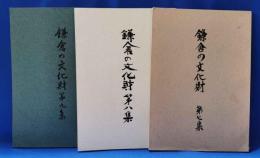 鎌倉の文化財 第九集
鎌倉の文化財 第八集
鎌倉の文化財
第七集